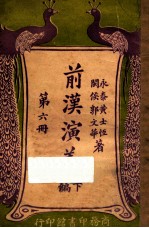 永泰黃士恆
閩侯郭文華
著
前漢演義
下編
第六冊
商務印書館印行